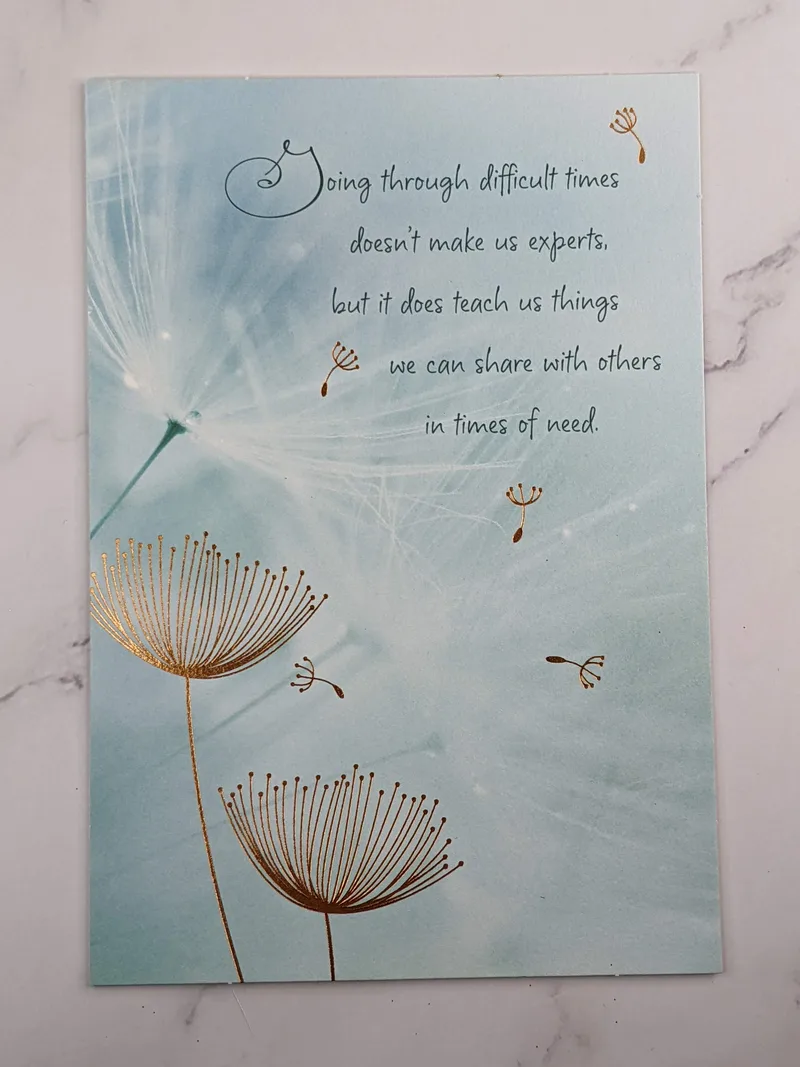 Going through difficult times
doesn't make us experts,
but it does teach us things
we can share with others
in times of need.